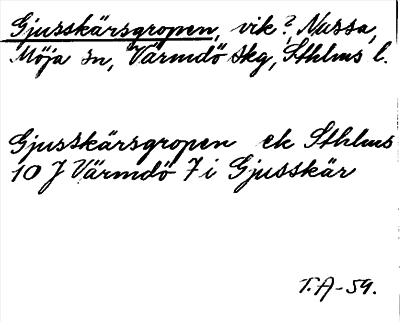 Gjusskärsgropen, vik? Nassa,
Möja sn, Värmdö skg, Sthlms l.
Gjusskärsgropen ek Sthlms
10 J Värmdö 7 i Gjusskär
T.A-59.